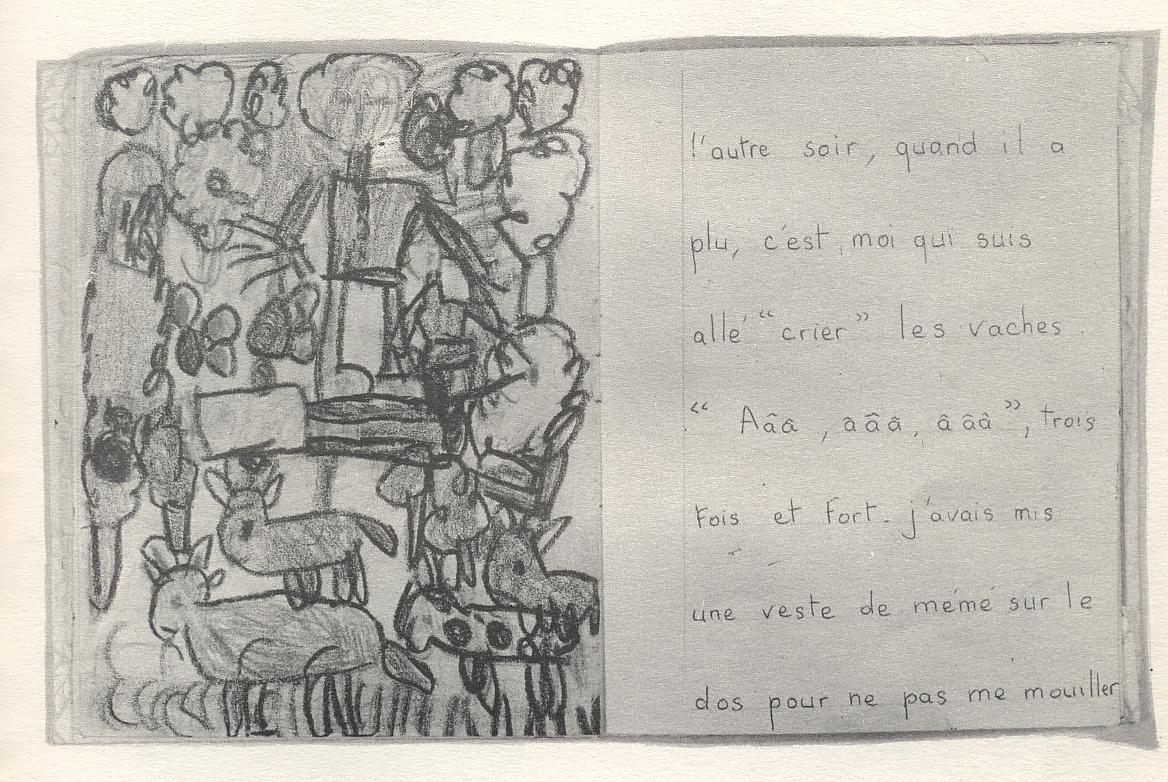 l'autre soir, quand il a
plu, c'est moi qui suis
allé “crier” les vaches.
“ Aââ, aââ, âââ ”, trois
fois et fort. j'avais mis
une veste de mémé sur le
dos pour ne pas me mouiller